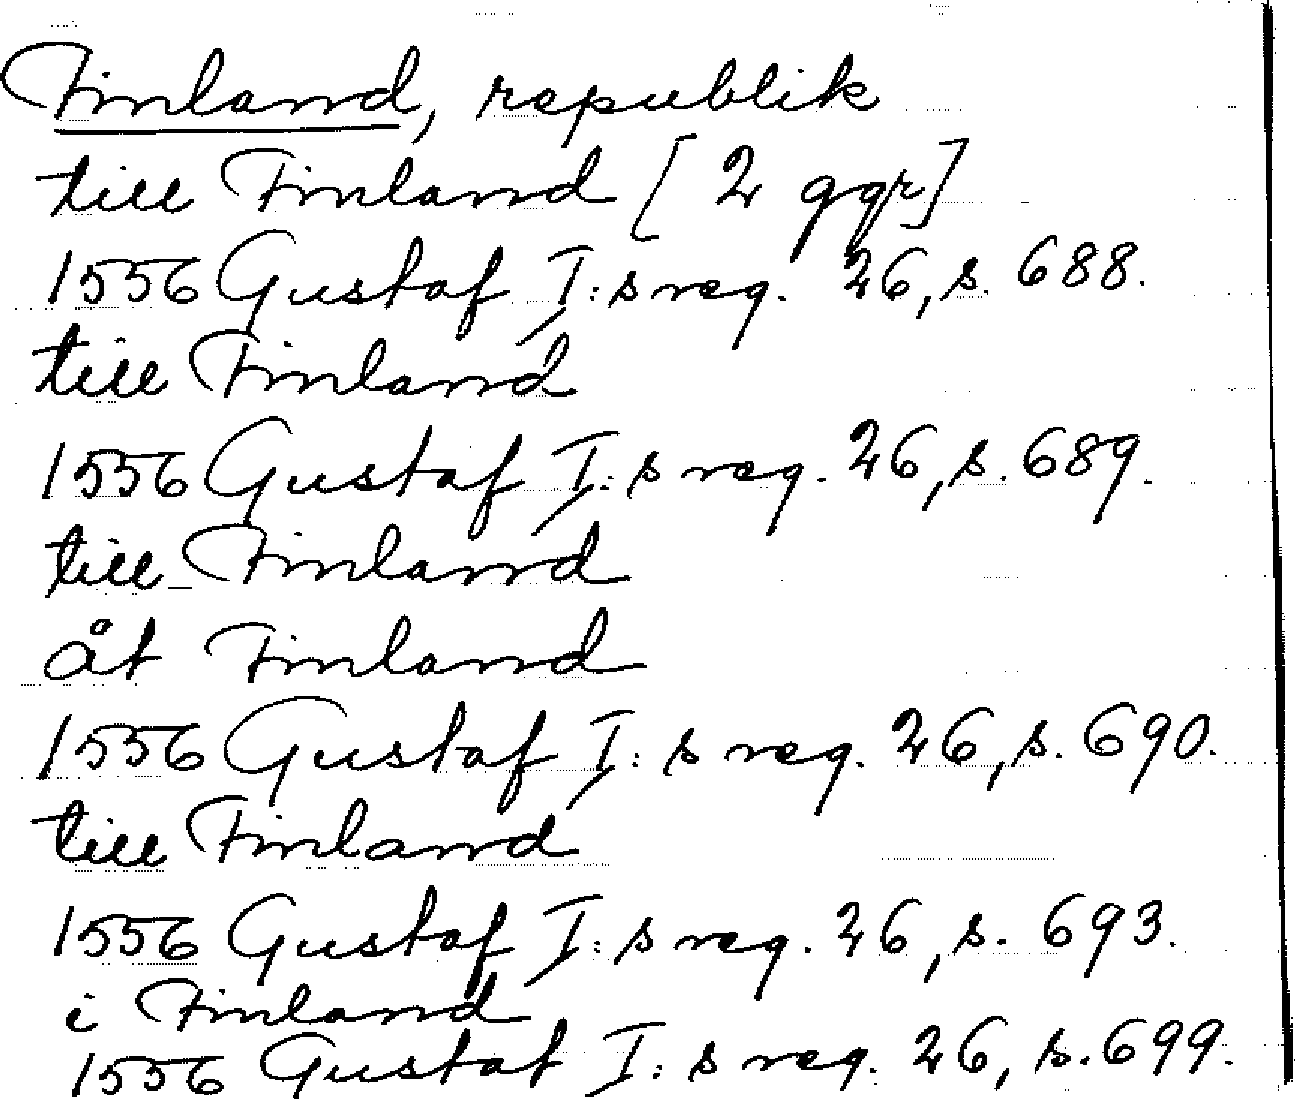 Finland, republik
till Finland [2 ggr]
1556 Gustaf I:s reg. 26, s. 688.
till Finland
1556 Gustaf I:s reg. 26, s. 689.
till Finland
åt Finland
1556 Gustaf I:s reg. 26, s. 690.
till Finland
1556 Gustaf I:s reg. 26, s. 693.
i Finland
1556 Gustaf I:s reg. 26, s. 699.